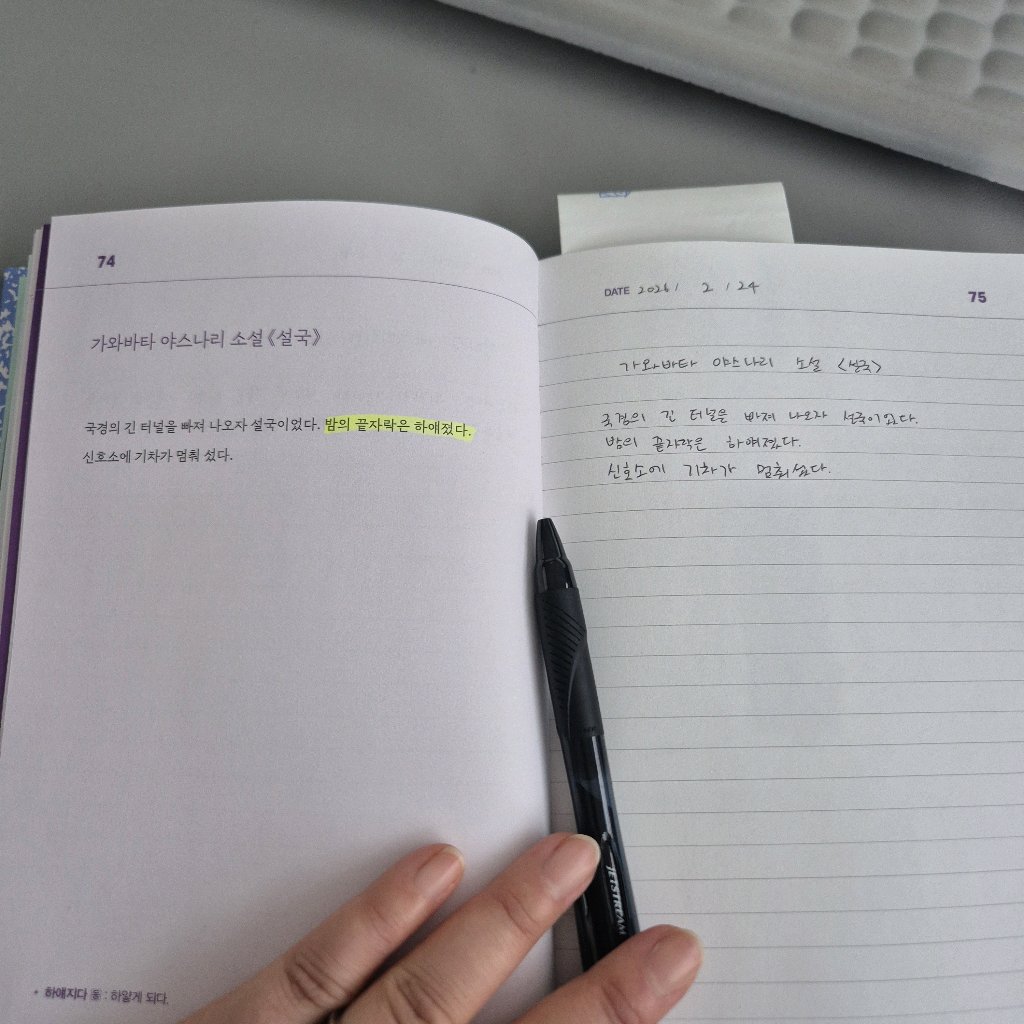 74
가와바타 야스나리 소설 《설국》
국경의 긴 터널을 빠져 나오자 설국이었다. 밤의 끝자락은 하얘졌다.
신호소에 기차가 멈춰 섰다.
* 하얘지다 동 : 하얗게 되다.
DATE 2026 / 2 / 24
75
가와바타 야스나리 소설 <설국>
국경의 긴 터널을 빠져 나오자 설국이었다.
밤의 끝자락은 하얘졌다.
신호소에 기차가 멈춰섰다.
JETSTREAM